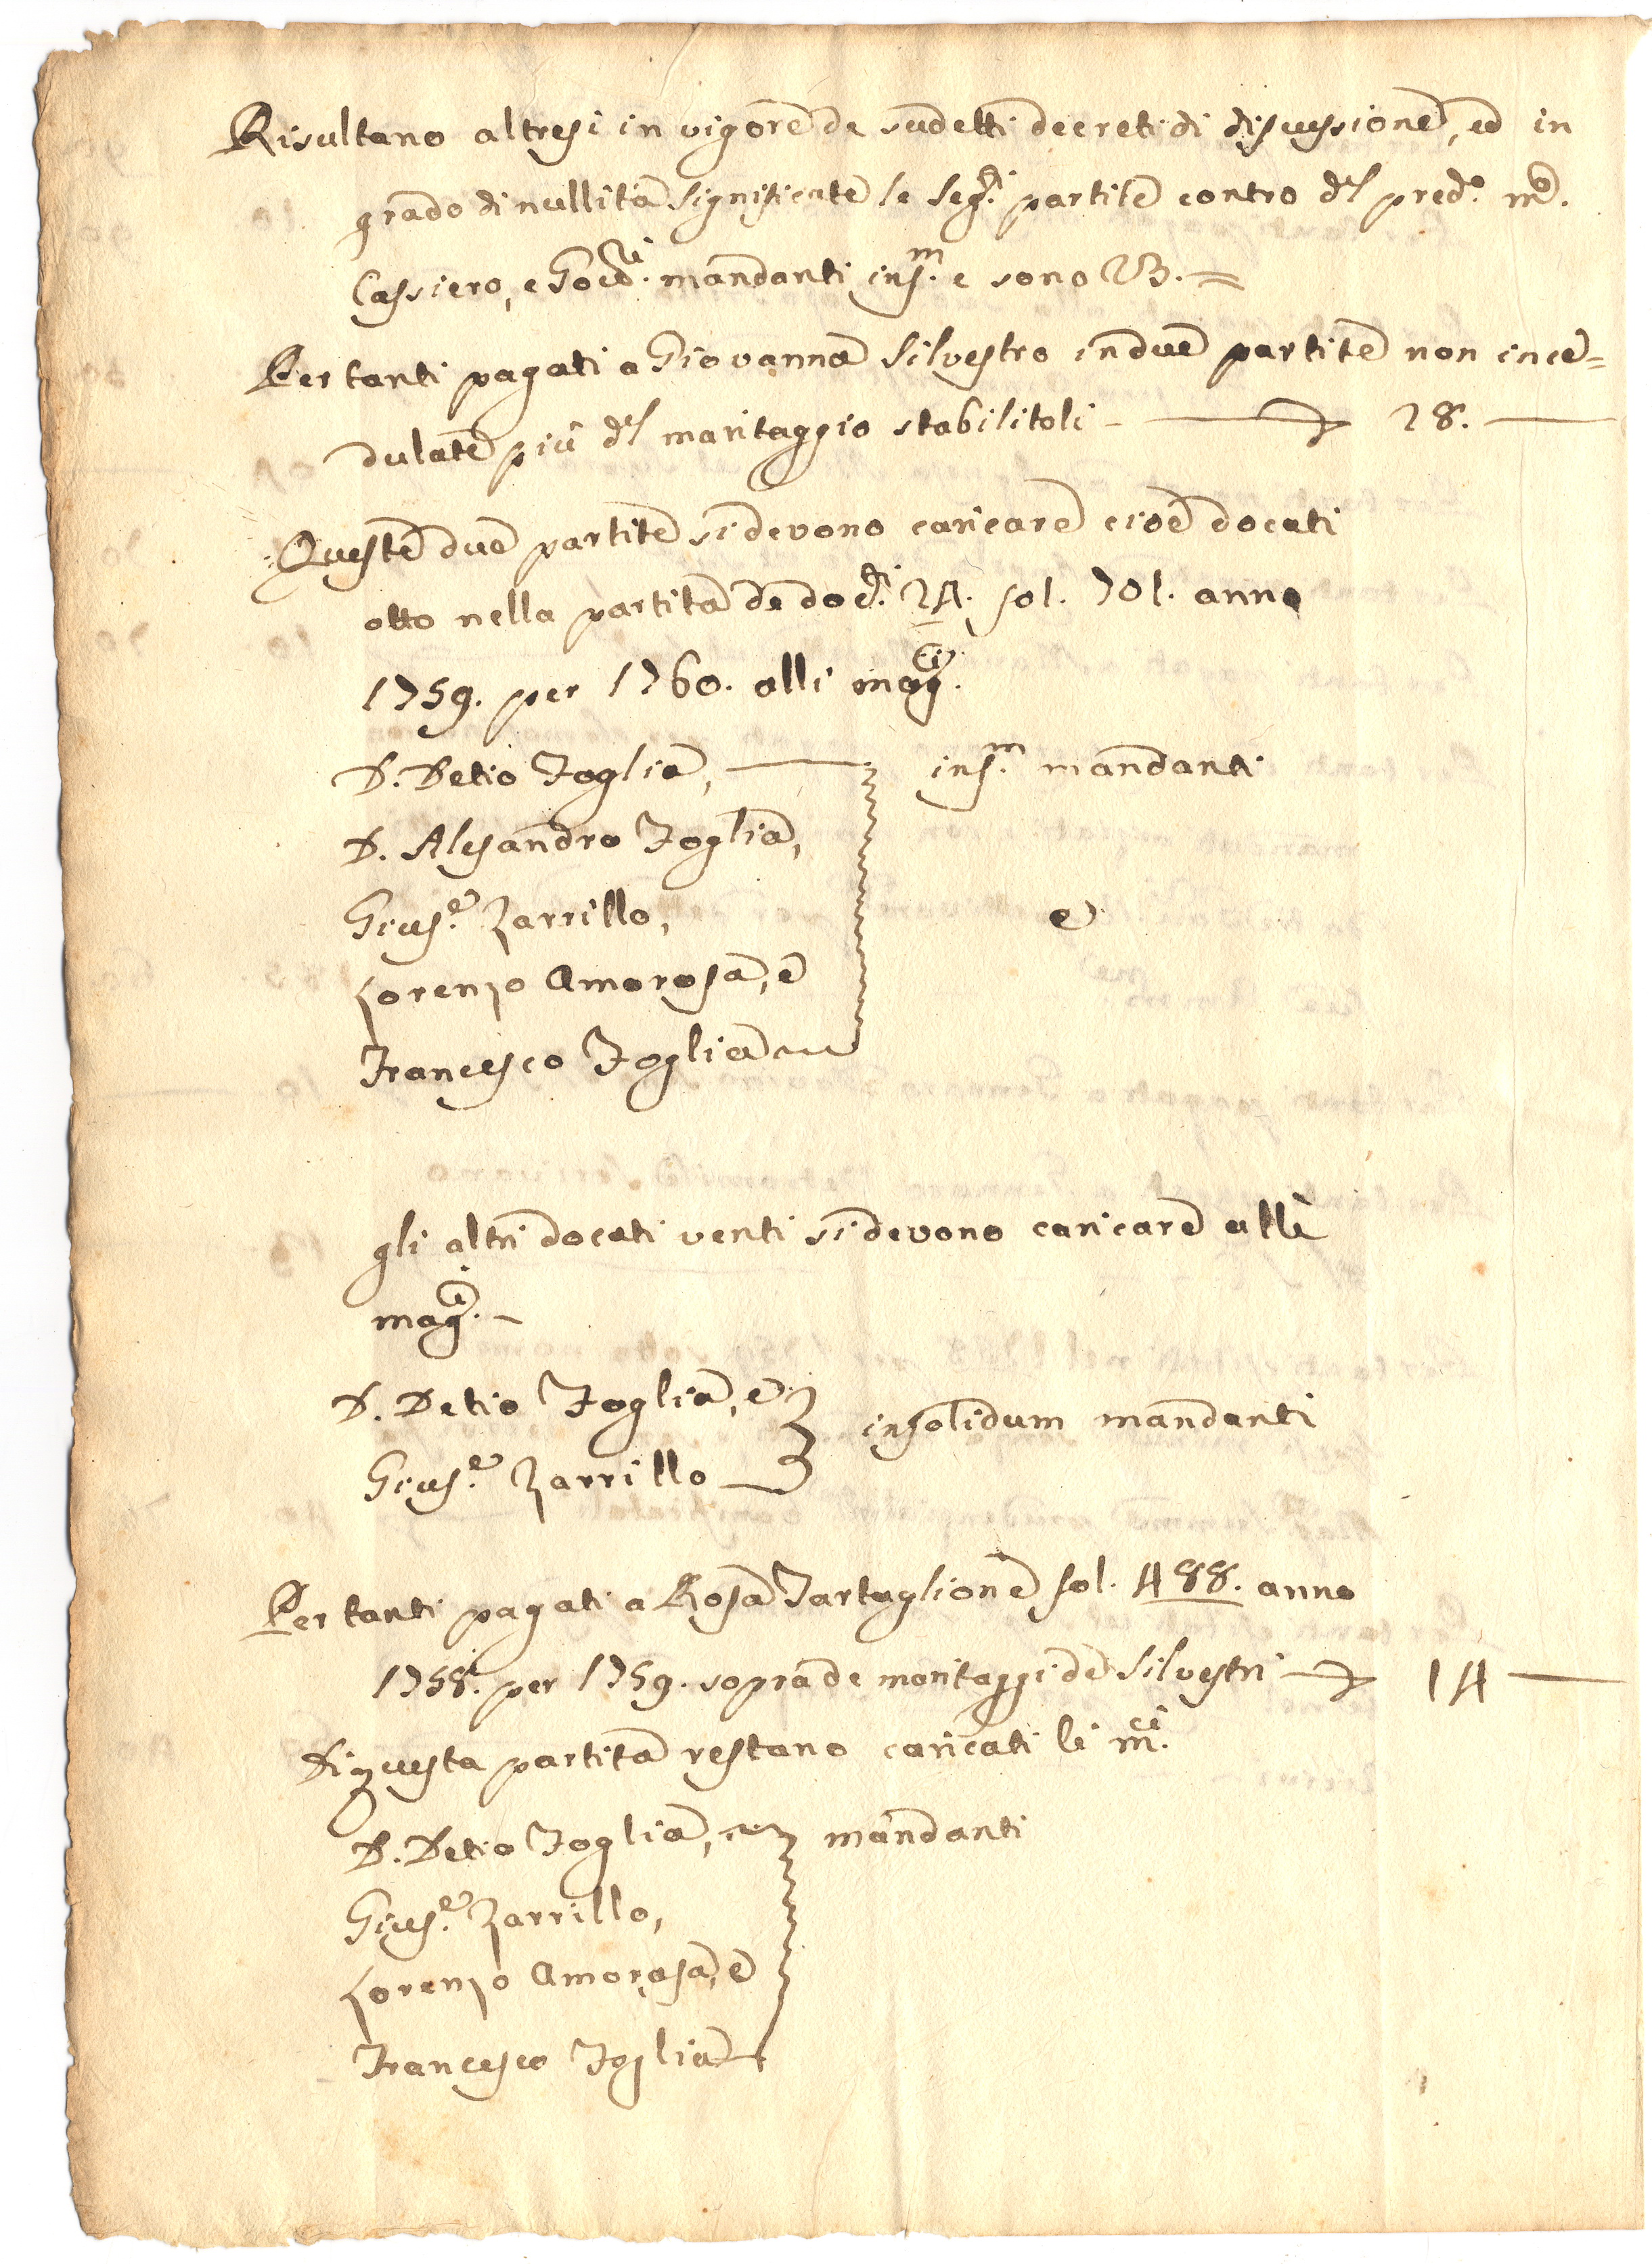 Risultano altresi in vigore de sudetti decreti di discussione, ed in
grado di nullità significate le seg.ti partite contro del pred.o m.o
Cassiero, e mandanti ins.m e sono
Per tanti pagati a Giovanna Silvestro in due partite non ince=
dulate più del maritaggio stabilitoli — 28. —
Queste due partite si devono caricare cioè docati
otto nella partita de doc.ti 24. fol. 701. anno
1759. per 1760. alli mag.ci
D. Detio Foglia, — ins.m mandanti
D. Alesandro Foglia,
Gius.e Zarrillo,
e
Lorenzo Amorosa, e
Francesco Foglia
gli altri docati venti si devono caricare alli
mag.ci —
D. Detio Foglia, e
insolidum mandanti
Gius.e Zarrillo
Per tanti pagati a Rosa Tartaglione fol. 488. anno
1758. per 1759. sopra de maritaggi de Silvestri — 14 —
Di questa partita restano caricati li m.ci
D. Detio Foglia, mandanti
Gius.e Zarrillo,
Lorenzo Amorosa, e
Francesco Foglia